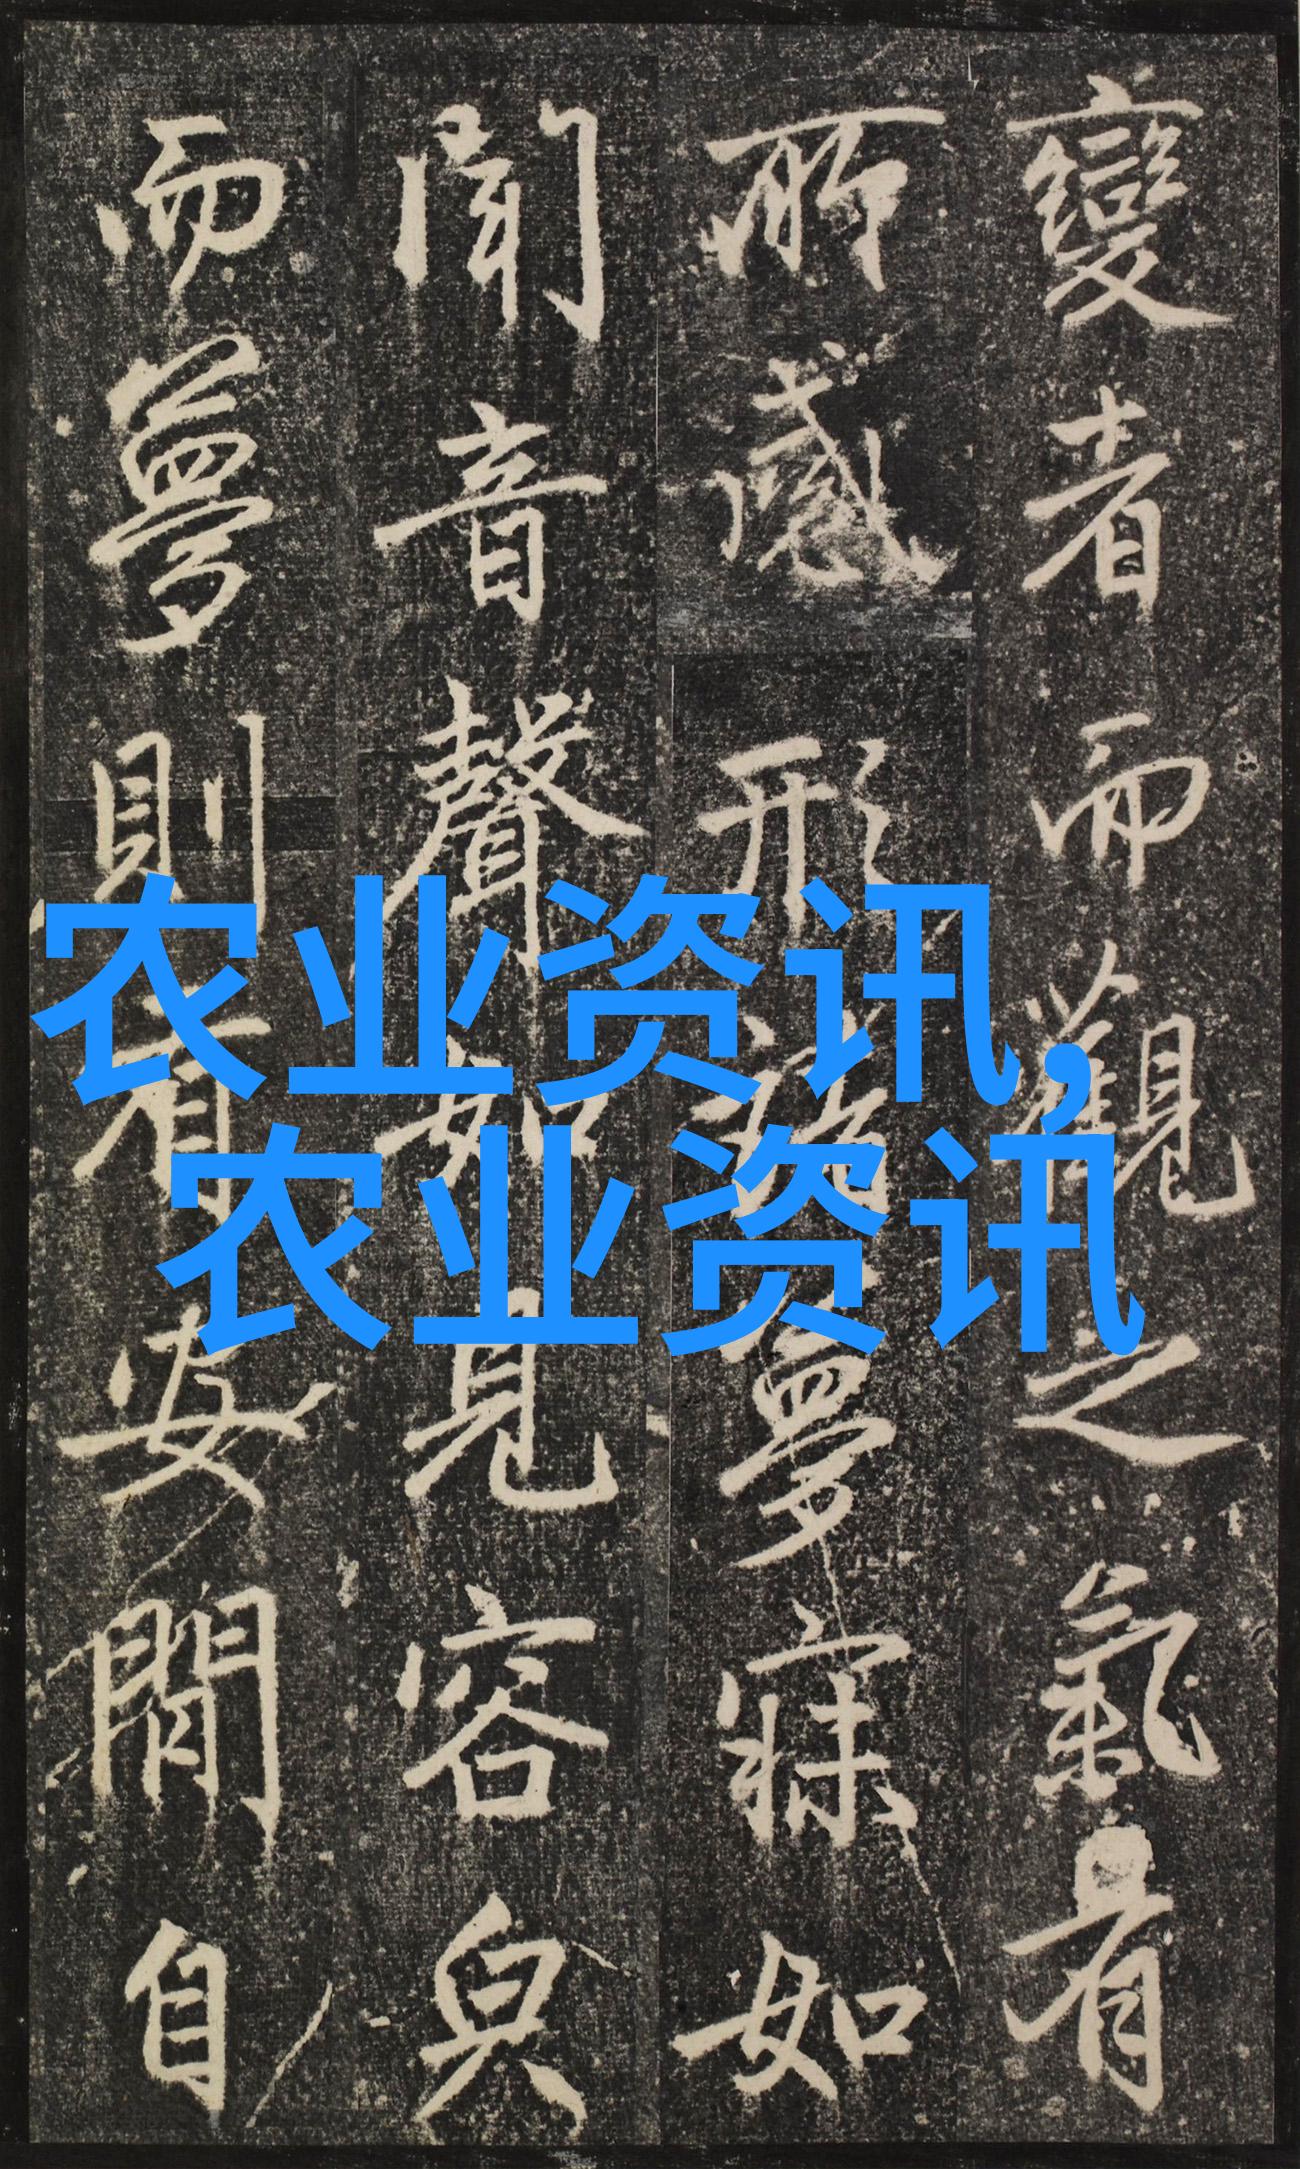 變者而觀之氣有
所感形諸夢寐如
聞音聲如見容皃
而夢則有安閒自
农业资讯,
农业资讯